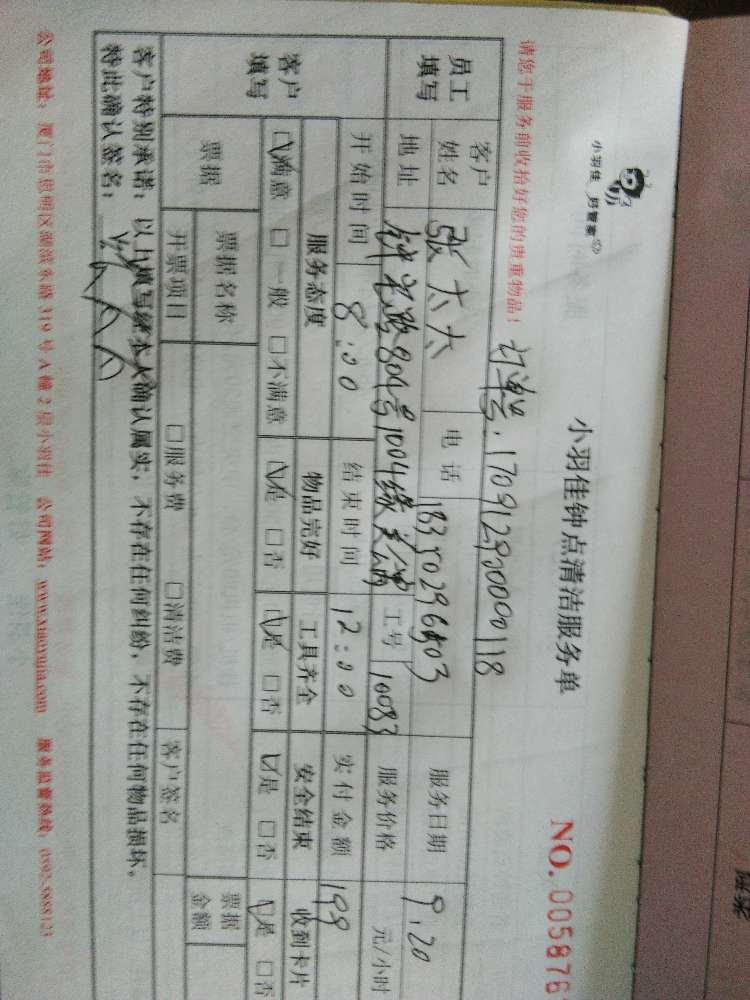 小羽佳 好管家
小羽佳钟点清洁服务单
NO. 005876
请您于服务前收拾好您的贵重物品!
订单号.170912900000118
员工填写
客户姓名 张太太 电话 服务日期 9.20
地址 1004 工号 10083 服务价格 元/小时
开始时间 8:00 结束时间 12:00 实付金额 199
客户填写
服务态度 物品完好 工具齐全 安全结束 收到卡片
☑满意 □一般 □不满意 ☑是 □否 ☑是 □否 ☑是 □否 ☑是 □否
票据 票据名称 票据金额
开票项目 □服务费 □清洁费 客户签名
客户特别承诺:以上填写经本人确认属实,不存在任何纠纷,不存在任何物品损坏。
特此确认签名:
公司地址:厦门市思明区湖滨东路319号A幢2层小羽佳 公司网站:www.xiaoyujia.com